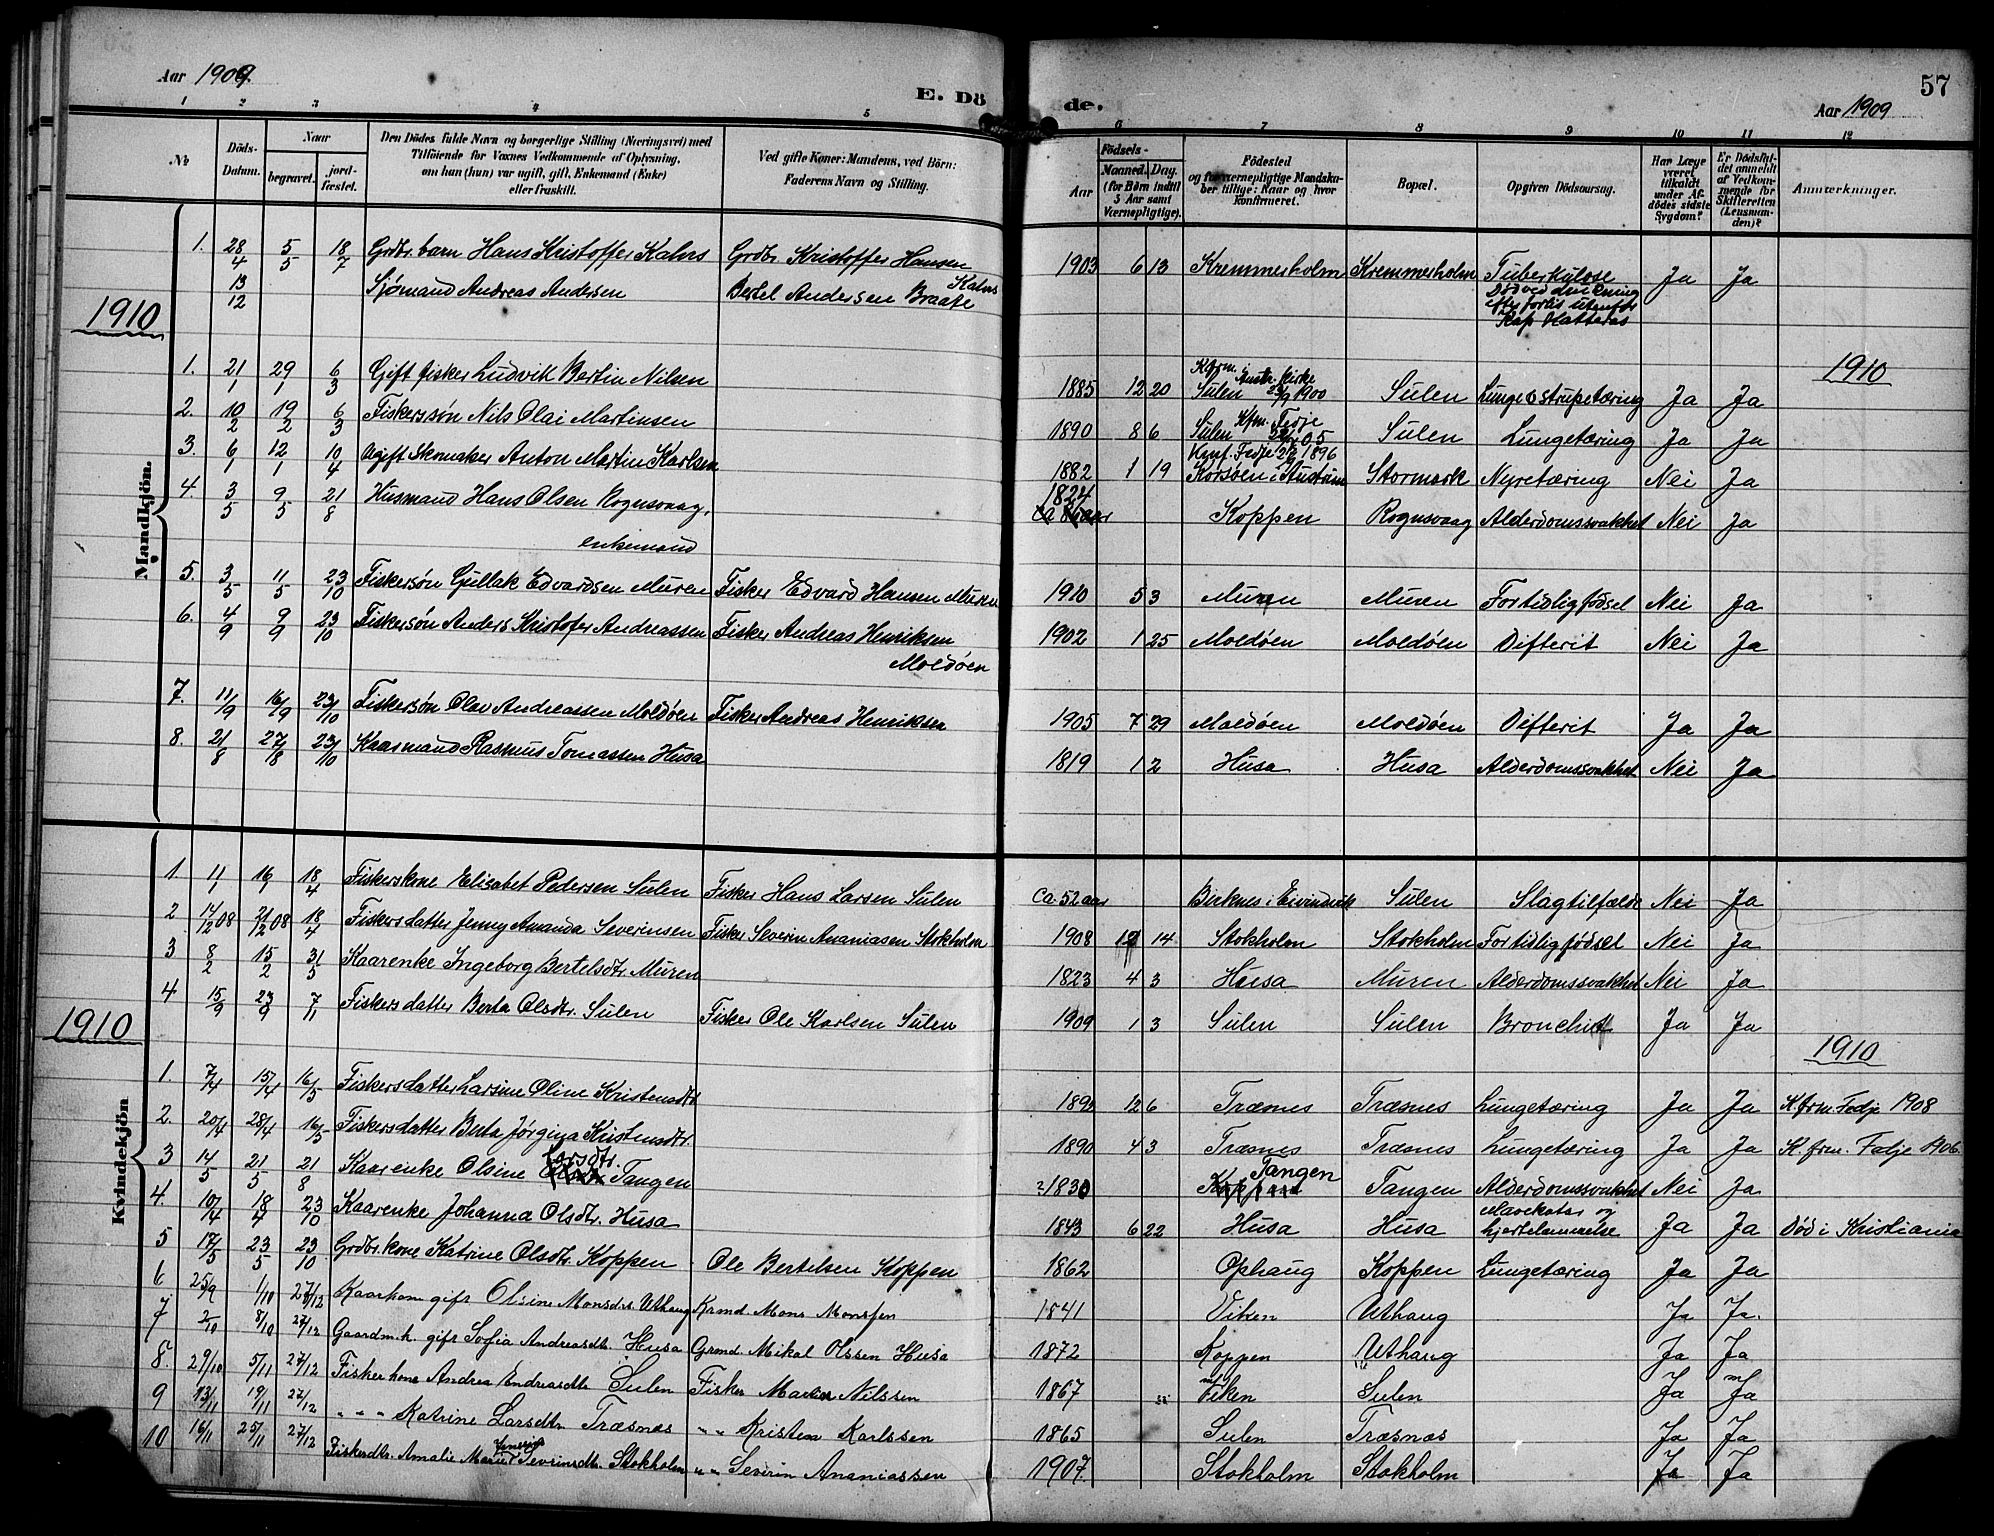 Aar 1909.
E. Dö de.
57
Aar 1909
1 2 3 4 5 6 7 8 9 10 11 12
No
Döds-Datum.
Naar
begravet.
jord-fæstet.
Den Dödes fulde Navn og borgerlige Stilling (Næringsvei) med
Tilföiende for Voxnes Vedkommende af Oplysning,
om han (hun) var ugift, gift, Enkemand (Enke)
eller fraskilt.
Ved gifte Koner: Mandens, ved Börn:
Faderens Navn og Stilling.
Födsels-
Aar
Maaned. Dag.
(for Börn indtil
5 Aar samt
Værnepligtige).
Födested
og for værnepligtige Mandska-
ber tillige: Naar og hvor
konfirmeret.
Bopæl.
Opgiven Dödsaarsag.
Har Læge
været
tilkaldt
under Af-
dödes sidste
Sygdom?
Er Dödsfal-
det anmeldt
af Vedkom-
mende for
Skifteretten
(Lensman-
den)?
Anmærkninger.
Mandkjön.
1. 28/4 5/5 18/7 Grdbr. barn Hans Kristoffer Kalns Grdbr Kristoffer Hansen Kalns 1903 6 13 Kremmerholm Kremmerholm Tuberkulose Ja Ja
13/12 Sjømand Andreas Andersen Bertel Andersen Død ved drukning efter forlis utenfor Kap Hatteras
1910
1910
1. 21/1 29/1 6/3 Gift fisker Ludvik Bertin Nilsen 1885 12 20 Kfrm. i Austr. kirke Sulen 1900 Sulen Lunge o strupetæring Ja Ja
2. 10/2 19/2 6/3 Fiskerssøn Nils Olai Martinsen 1890 8 6 Kfm. Fedje Sulen 05 Sulen Lungetæring Ja Ja
3. 6/1 12/1 10/4 Ugift Skomaker Anton Martin Karlsen 1882 1 19 Konf. Fedje 1896 Korsøen i Austrum Stormark Nyretæring Nei Ja
4. 3/5 9/5 21/8 Husmand Hans Olsen Rognsvaag, enkemand 1824 Koppen Rognsvaag Alderdomssvakhet Nei Ja
5. 3/5 11/5 23/10 Fiskersøn Gullak Edvardsen Muren Fisker Edvard Hansen Muren 1910 5 3 Muren Muren For tidlig fødsel Nei Ja
6. 4/9 9/9 23/10 Fiskersøn Anders Kristofer Andreassen Fisker Andreas Henriksen Moldøen 1902 1 25 Moldøen Moldøen Difterit Nei Ja
7. 11/9 16/9 23/10 Fiskersøn Olav Andreassen Moldøen Fisker Andreas Henriksen 1905 7 29 Moldøen Moldøen Difterit Ja Ja
8. 21/8 27/8 23/10 Kaarmand Rasmus Tomassen Husa 1819 1 2 Husa Husa Alderdomssvakhet Nei Ja
Kvindekjön
1 1/1 16/1 18/4 Fiskerskone Elisabet Pedersen Sulen Fisker Hans Larsen Sulen Ca. 52 aar Birknes i Eivindvik Sulen Slagtilfælde Nei Ja
2 14/12 08 21/12 08 18/4 Fiskersdatter Jenny Amanda Severinsen Fisker Severin Ananiasen Stokholm 1908 12 14 Stokholm Stokholm For tidlig fødsel Nei Ja
3 8/2 15/2 31/5 Kaarenke Ingeborg Bertelsdtr Muren 1823 4 3 Husa Muren Alderdomssvakhet Nei Ja
4 15/9 23/9 7/11 Fiskersdatter Berta Olsdtr. Sulen Fisker Ole Karlsen Sulen 1909 1 3 Sulen Sulen Bronchit Ja Ja
1910
1910
1. 7/4 15/4 16/5 Fiskersdatter Larsine Oline Kristensdtr 12 6 Træsnes Træsnes Lungetæring Ja Ja Kfrm. Fedje 1908
2. 20/4 28/4 16/5 Fiskersdatter Berta Jørgina Kristensdtr. 1890 4 3 Træsnes Træsnes Lungetæring Ja Ja Kfrm. Fedje 1906.
3 14/5 21/5 21/8 Kaarenke Olsine Larsdtr. Tangen 1830 Tangen Tangen Alderdomssvakhet Nei Ja
4. 10/4 18/4 23/10 Kaarenke Johanna Olsdtr. Husa 1843 6 22 Husa Husa Mavekatar og hjertelammelse Ja Ja Død i Kristiania
5 17/5 23/5 23/10 Grdbr. kone Katrine Olsdtr. Koppen Ole Bertelsen Koppen 1862 Ophaug Koppen Lungetæring Ja Ja
6 25/9 1/10 27/12 Kaarkone gift Olsine Monsdtr. Uthaug Krmd. Mons Monssen 1841 Viken Uthaug Ja Ja.
7 2/10 8/10 27/12 Gaardm.k. gift Sofia Andreasdtr. Husa Grmd. Mikal Olssen Husa 1872 Koppen Uthaug Ja Ja
8. 29/10 5/11 27/12 Fiskerkone Andrea Endreasdtr Sulen Fisker Martin Nilssen 1867 Viken Sulen Ja Ja
9 13/11 19/11 27/12 „ „ „ Katrine Larsdtr Træsnæs „ „ Kristen Karlssen 1865 Sulen Træsnæs Ja Ja
10 16/11 25/11 27/12 Fiskerdtr. Amalie Marie Severinsdtr. Stokholm „ „ Severin Ananiassen 1907. Stokholm Stokholm Ja Ja